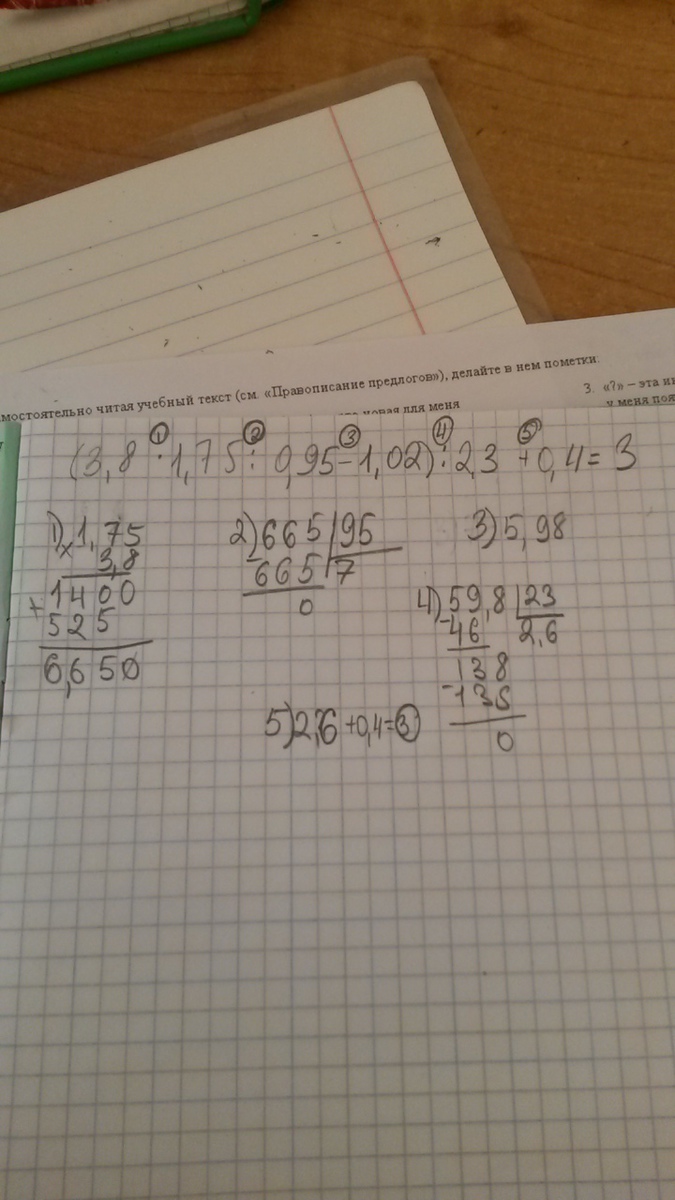 мостоятельно читая учебный текст (см. «Правописание предлогов»), делайте в нем пометки:
3. «?» – эта ин
новая для меня
у меня поя
① ② ③ ④ ⑤
(3,8 · 1,75 : 0,95 – 1,02) : 2,3 + 0,4 = 3
1) × 1,75
3,8
+ 1400
525
6,650
2) 665 | 95
- 665 | 7
0
3) 5,98
4) 59,8 | 23
- 46 | 2,6
138
- 138
0
5) 2,6 + 0,4 = ③